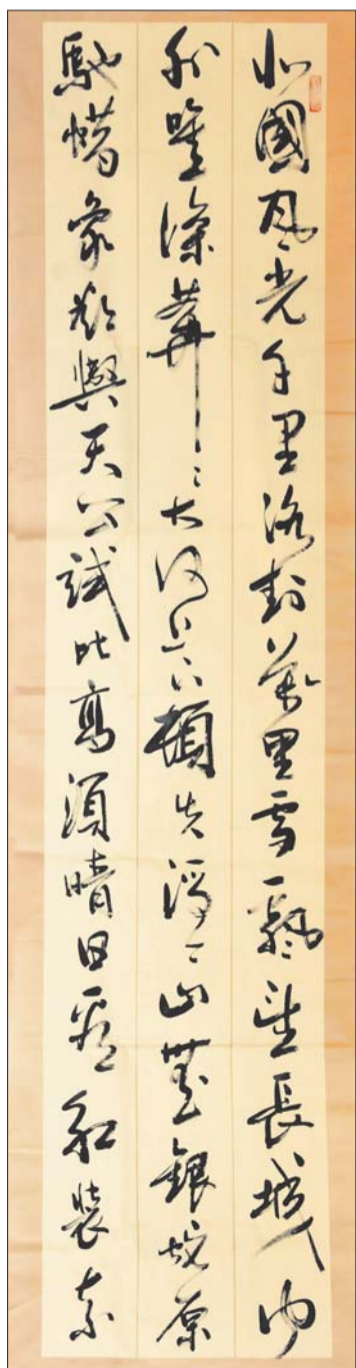 北國風光千里冰封萬里雪飄望長城内
外唯餘莽〻大河上下頓失滔〻山舞銀蛇原
馳蜡象欲與天公試比高須晴日看紅裝素